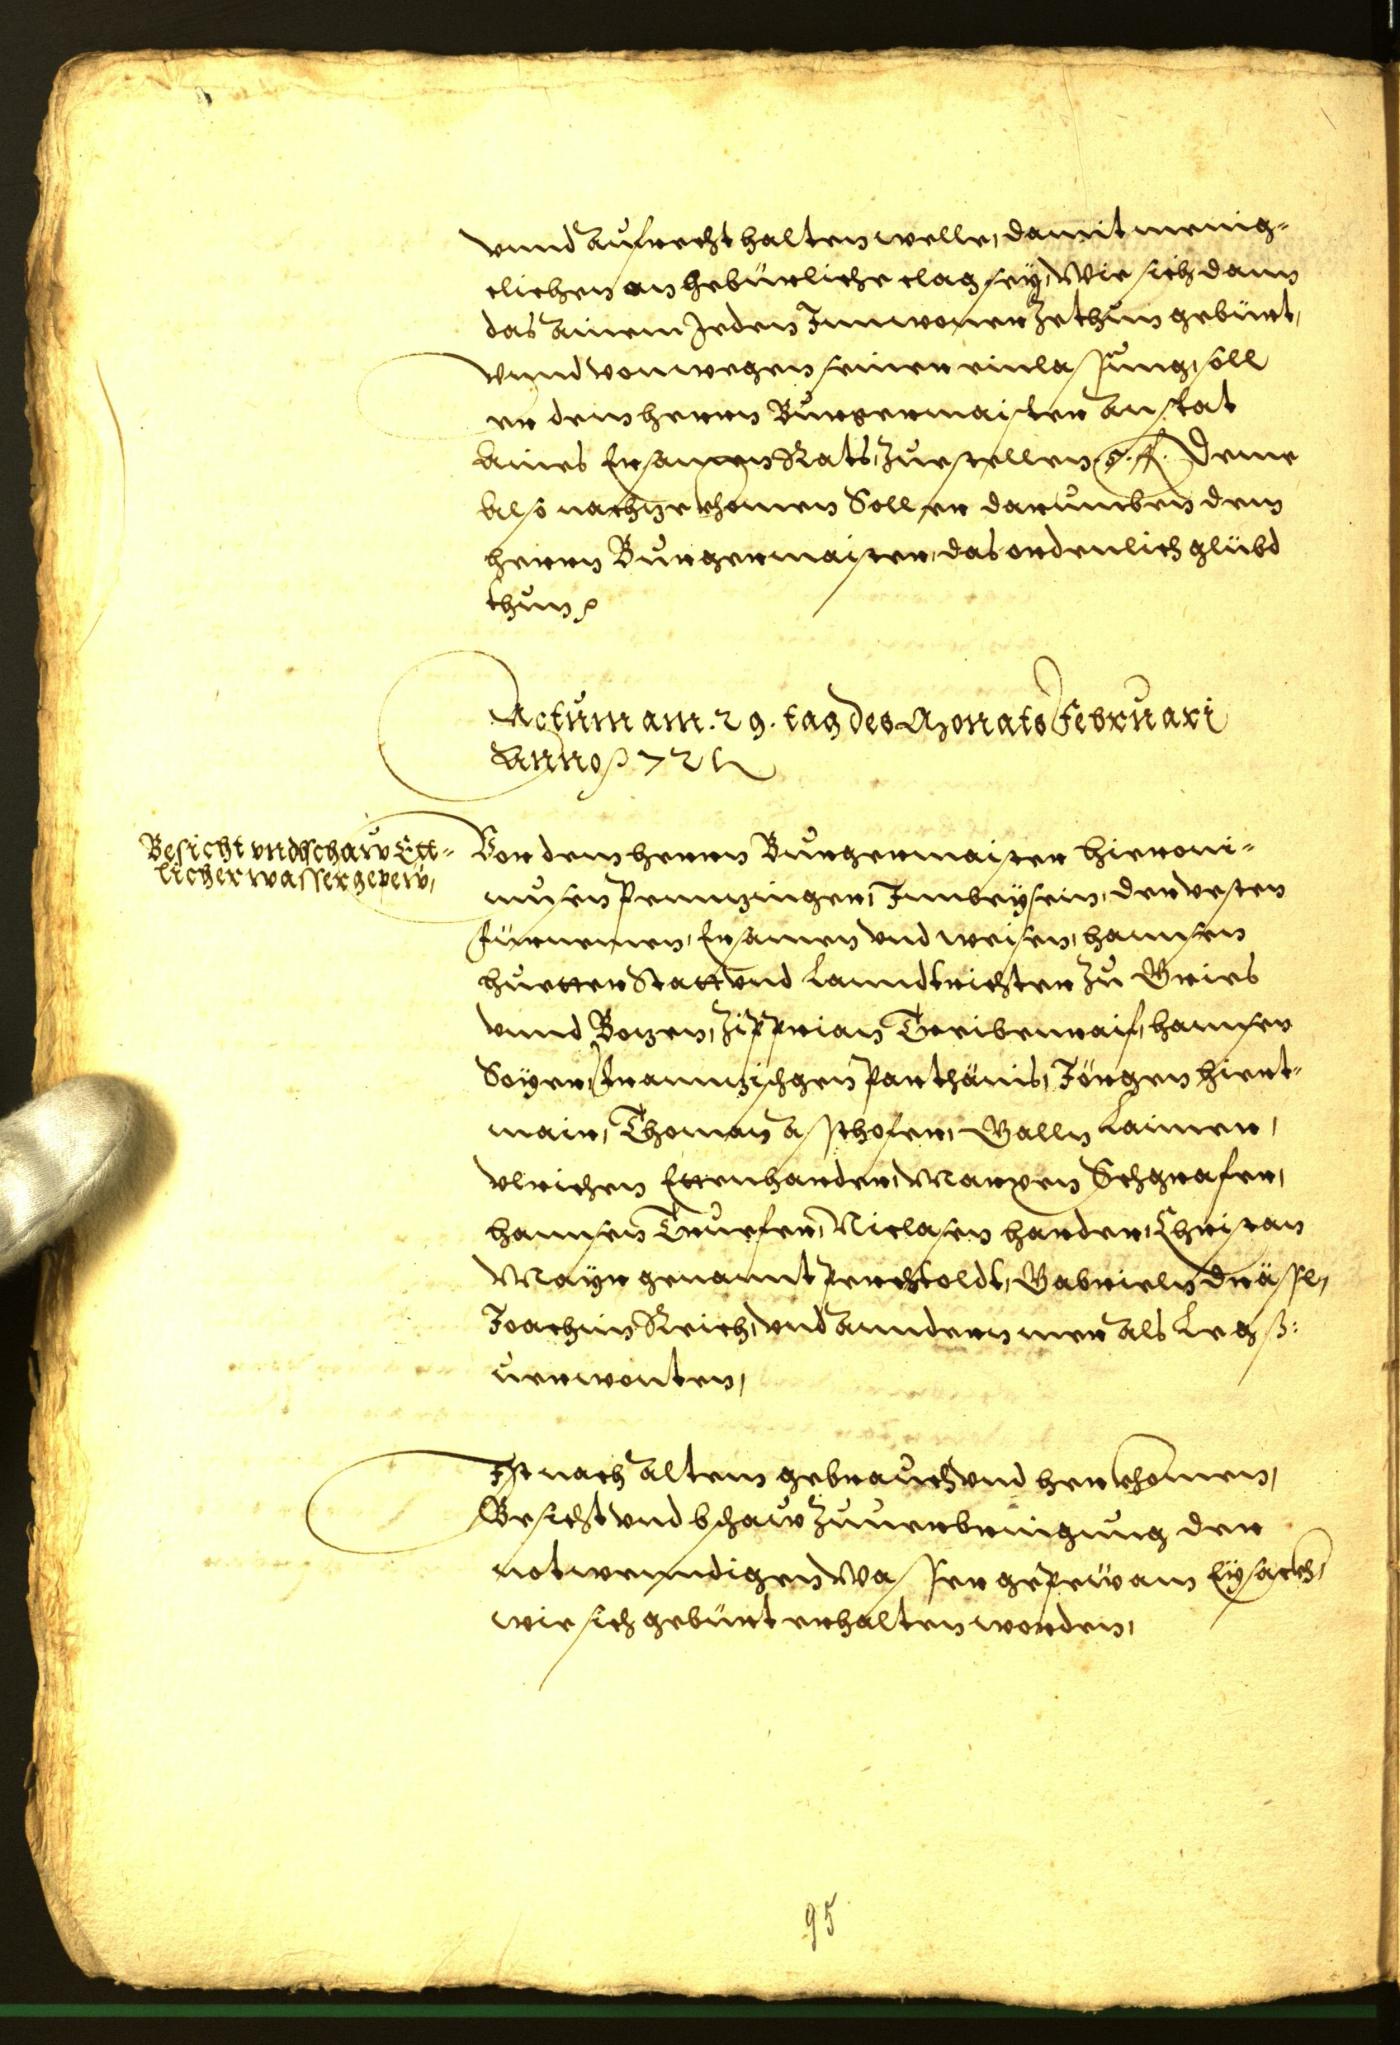 vnnd aufrecht halten welle, damit menig-
clichen an gebürliche clag sey, Wie sich dann
das ainem Jeden Innwoner zethun gebürt,
Vnnd von wegen seiner einlassung, soll
er dem herrn Burgermaister anstat
Aines Ersamen Rats, zuestellen Deme
Also nachzekhomen Soll er darumben dem
herrn Burgermaister, das ordenlich glübd
thun
Actum am .29. tag des Monats Februari
Anno 72
Besicht vnd schaw Ett-
licher wasser gepew,
Vor dem herrn Burgermaister hieroni-
musen Pennzinger, Innbeysein, der vesten
fürnemen, Ersamen vnd weisen, hannsen
huetter Statt vnd Lanndtrichter zu Gries
vnnd Bozen, Zipprian Treibenraif, hannsen
Soyer, Frannzischgen Parthänis, Jörgen hirt-
mair, Thoman Asthofer, Galln Laimer,
vlrichen Ettenharder, Marxen Schgrafer,
hannsen Truefer, Niclasen harder, Christan
Mayr genannt Perchtoldt, Gabrieln Dräsl,
Joachim Reich, vnd anndern mer als Legß:
uerwonten,
Ist nach altem gebrauch vnd herkhomen,
Besicht vnd bschaw zuuerbringung der
notwenndigen Wasser gepew am Eysackh,
wie sich gebürt erhalten worden,
95